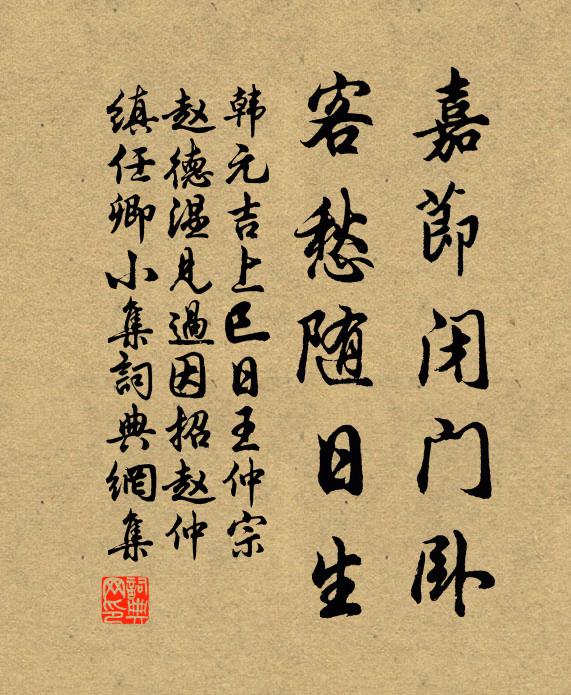 嘉節闭门卧
客愁随日生
韩元吉上巳日王仲宗
赵德温見過因招赵仲
缜任卿小集詞典網集
詞典网印